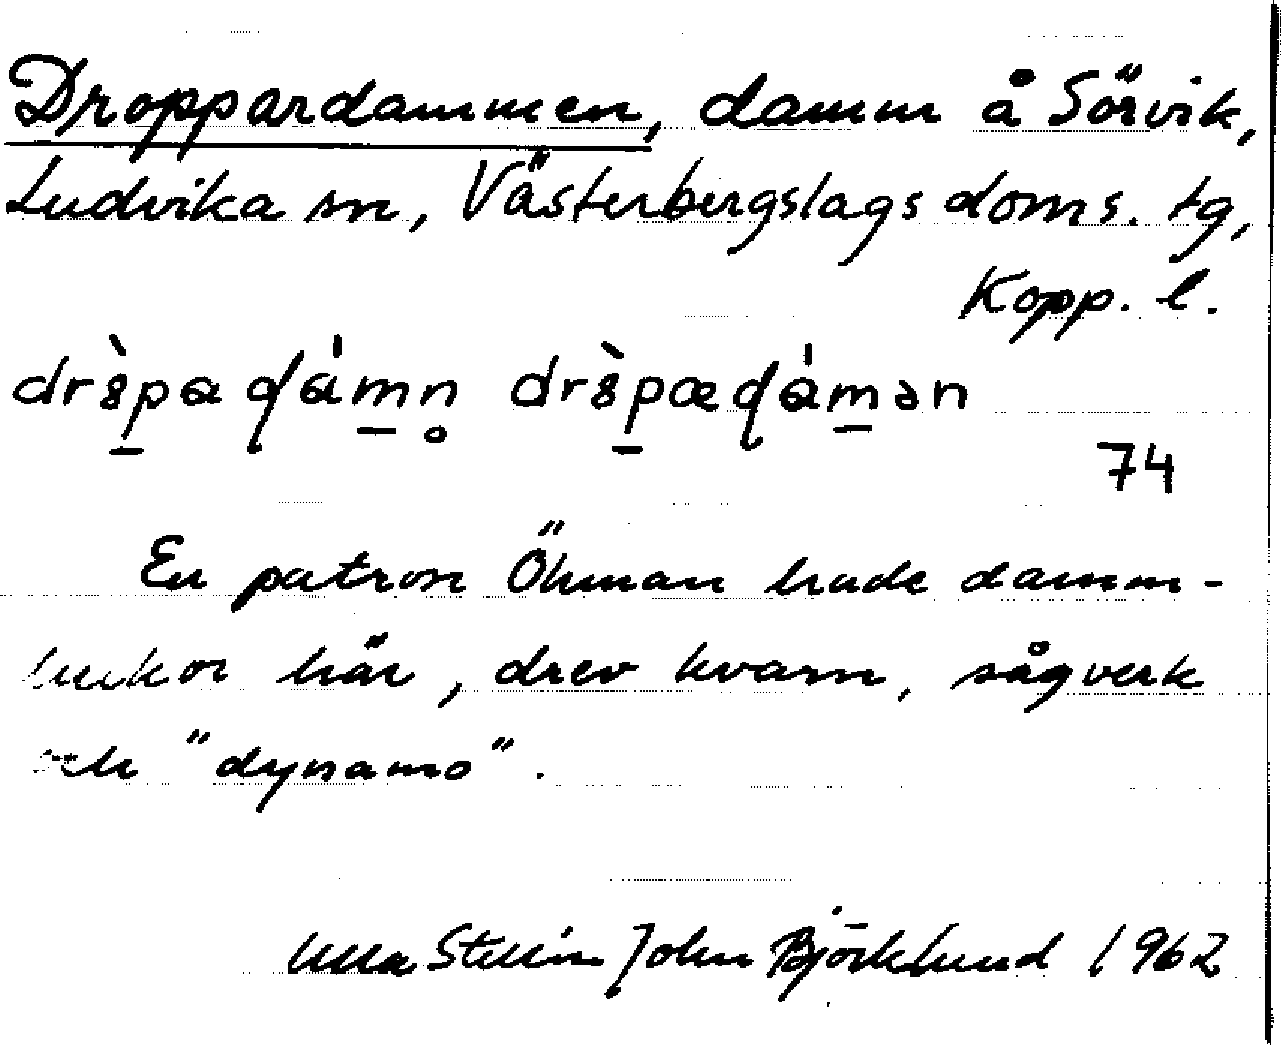 Droppardammen, damm å Sörvik,
Ludvika sn, Västerbergslags doms. tg,
Kopp. l.
dr8̀p̲a ɖám̲n̥ dr8̀p̲æɖám̲ən
74
En patron Öhman hade damm-
luckor här, drev kvarn, sågverk
och "dynamo".
Ulla Stellin John Björklund 1962